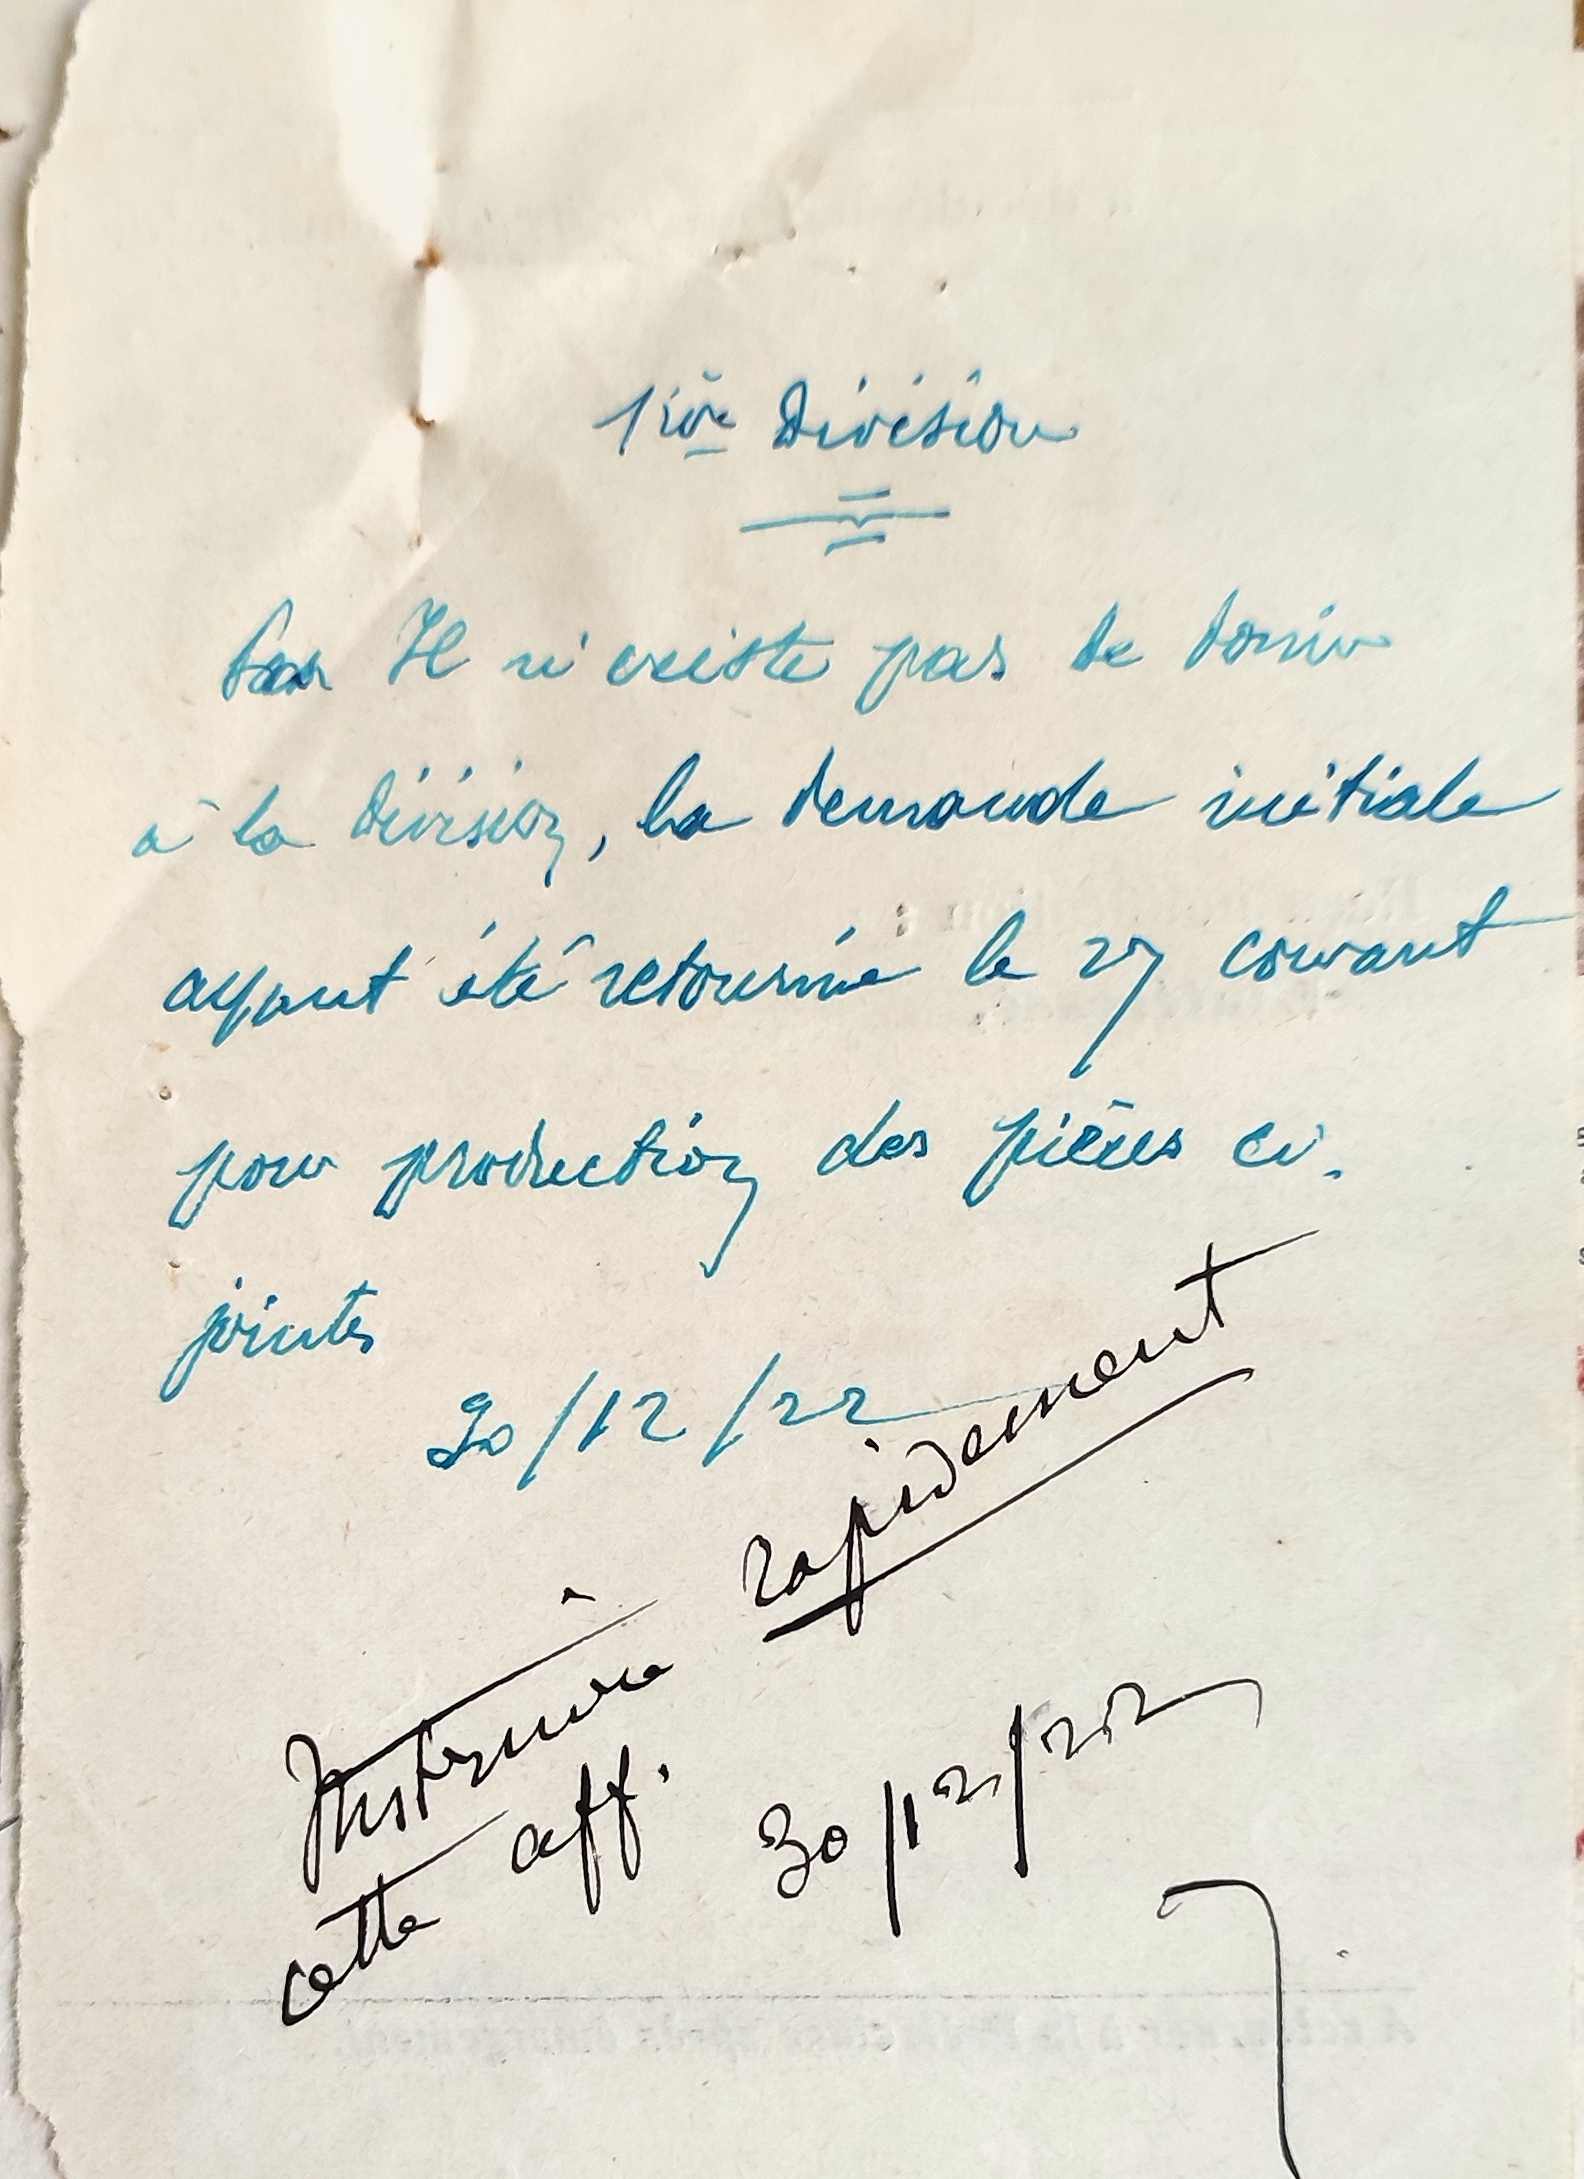 1ière Division
Il n'existe pas de dossier
à la division, la demande initiale
ayant été retournée le 27 courant
pour production des pièces ci-
jointes
30/12/22
Instruire rapidement
cette aff.
30/12/22